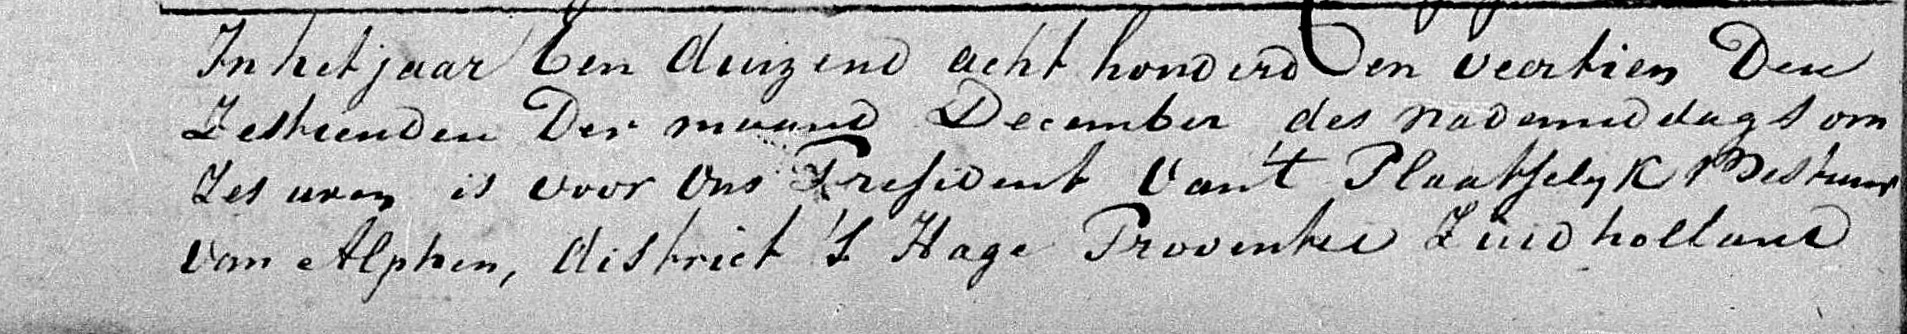 In het jaar Een duizend acht honderd en veertien Den
Zestienden Der maand December des nademiddags om
Zes uren is voor Ons President van't Plaatselyk Bestuur
van Alphen, district 'S Hage Provintie Zuid holland